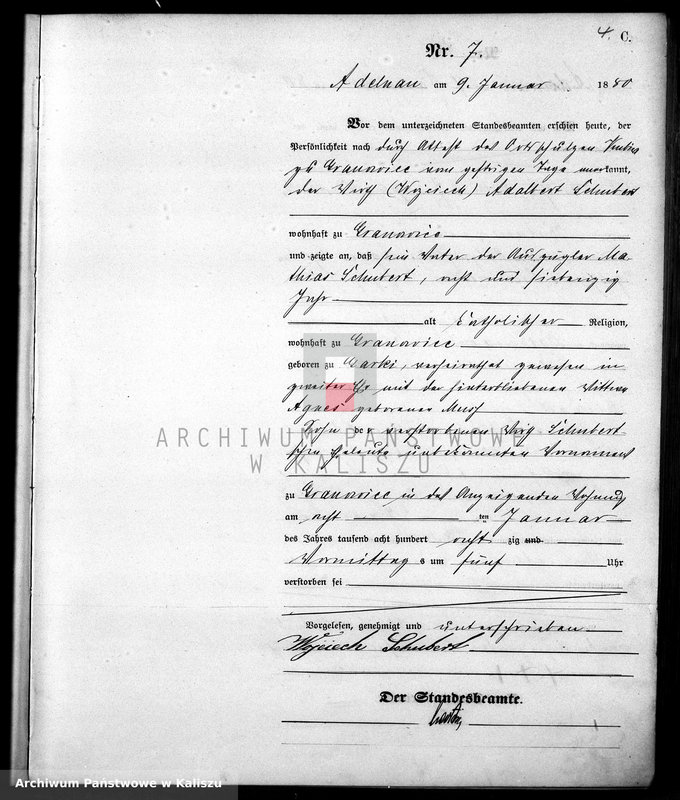 4. C.
Nr. 7.
Adelnau am 9. Januar 1880
Vor dem unterzeichneten Standesbeamten erschien heute, der
Persönlichkeit nach durch Attest des Ortsschulzen
zu Granowiec vom gestrigen Tage anerkannt,
der Wirth (Wojciech) Adalbert Schubert
wohnhaft zu Granowiec
und zeigte an, daß sein Vater der Auszügler Ma-
thias Schubert, acht und siebenzig
Jahr
alt katholischer Religion,
wohnhaft zu Granowiec
geboren zu Garki, verheirathet gewesen in
zweiter Ehe mit der hinterbliebenen Wittwe
Agnes geborenen
Sohn der verstorbenen Wirth Schubert
schen Eheleute unbekannten Vornamens
zu Granowiec in des Anzeigenden Wohnung
am acht ten Januar
des Jahres tausend acht hundert acht zig und
Vormittag s um fünf Uhr
verstorben sei
Vorgelesen, genehmigt und unterschrieben
Wojciech Schubert
Der Standesbeamte.
ARCHIWUM PAŃSTWOWE
W KALISZU
Archiwum Państwowe w Kaliszu